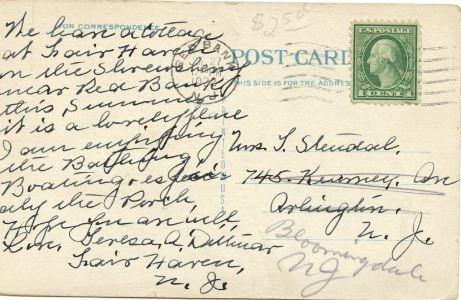 FOR CORRESPONDENCE
$2.50
We have a cottage
at Fair Haven
on the Shrewsbury
near Red Bank
this Summer
it is a lovely place
I am enjoying
the Bathing,
Boating & especi-
ally the Porch,
Hope you are well,
Love, Teresa A. Dittmar
Fair Haven,
N. J.
RED BANK
N.J.
POST CARD
THIS SIDE IS FOR THE ADDRESS
U.S. POSTAGE
1 CENT 1
Mrs. T. Stendal,
745 Kearney. Av
Arlington,
N. J.
Bloomingdale
NJ